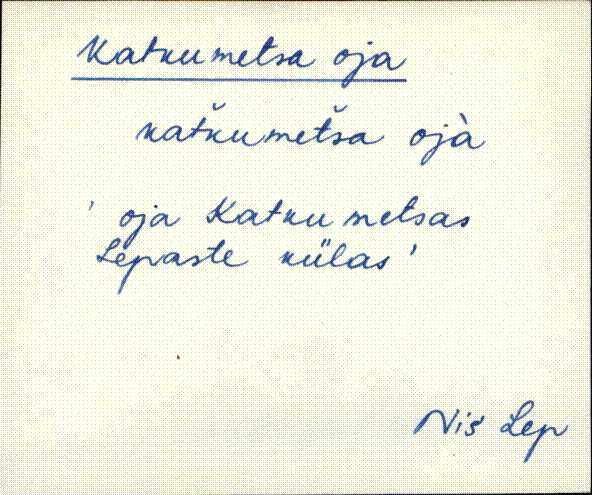 Katkumetsa oja
katˇkumetˇsa ojà
' oja Katkumetsas
Lepaste külas '
Nis Lep